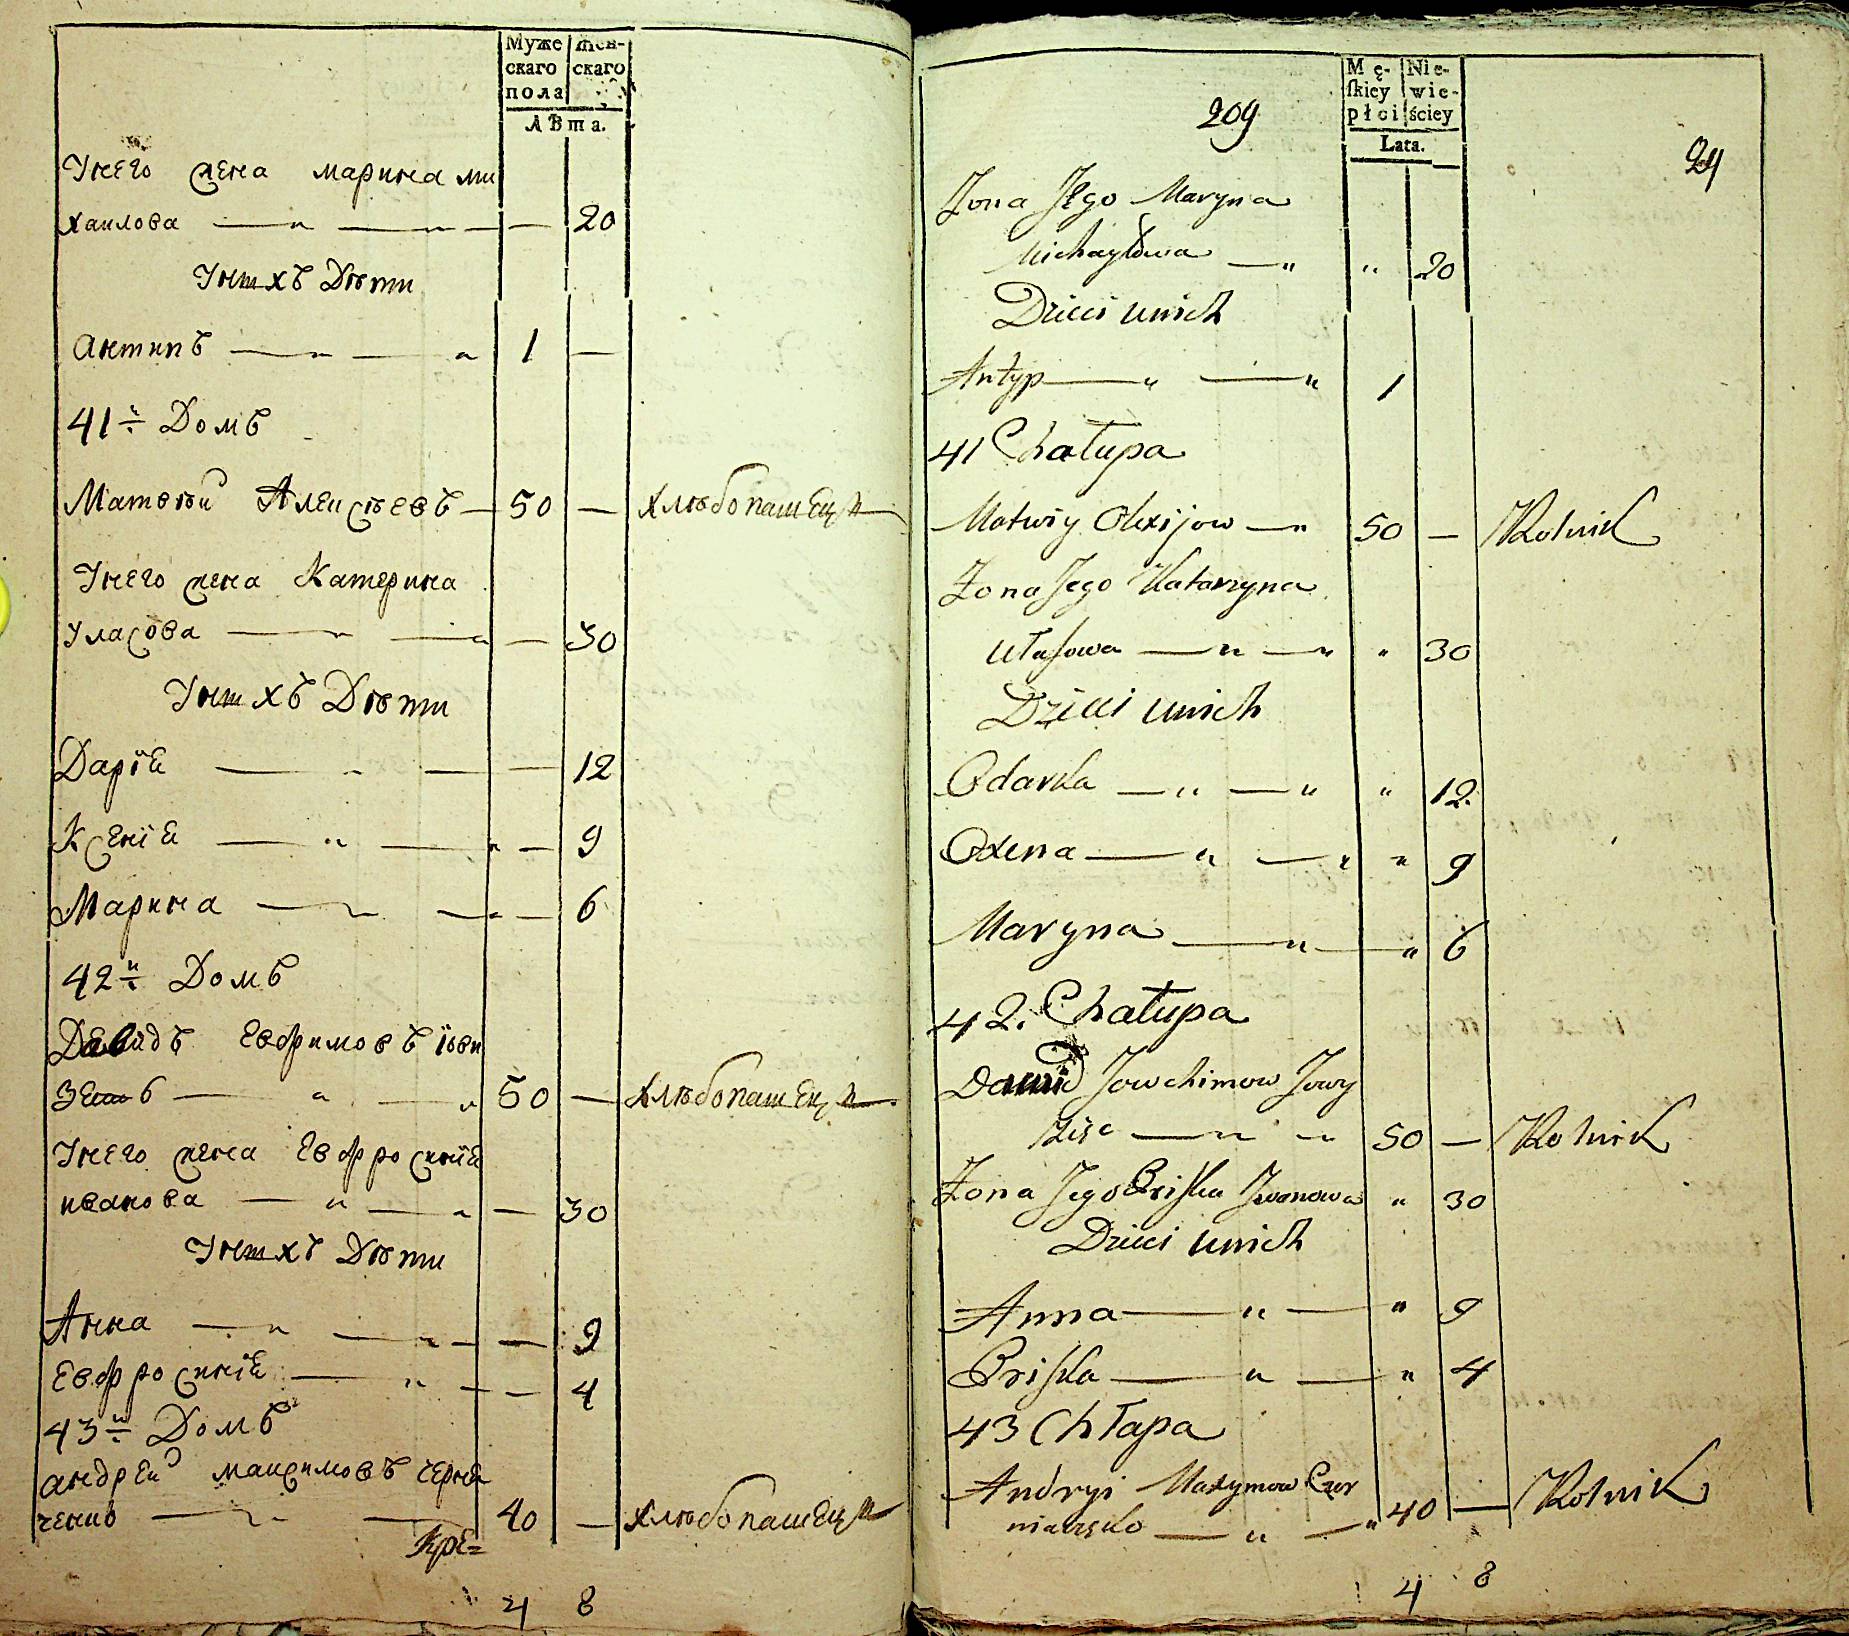 Муже
скаго
пола
Жен-
скаго
Лѣта.
Унего жена марина ми
хаилова 20
Унихъ Дѣти
Антипъ 1
41й Домъ
Матвѣй Алексѣевъ 50 хлѣбопашецъ
Унего жена Катерина
Уласова 30
Унихъ Дѣти
Дарїя 12
Ксенїя 9
Марина 6
42й Домъ
Давидъ Евфимовъ
50 хлѣбопашецъ
Унего жена Евфросинїя
иванова 30
Унихъ Дѣти
Анна 9
Евфросинїя 4
43й Домъ
андрей максимовъ черня
ченко 40 хлѣбопашецъ
Кре=
4 8
209
Mę-
ſkiey
płci
Nie-
wie-
ściey
Lata.
24
Zona Jego Maryna
Michayłowa 20
Dzieci unich
Antyp 1
41 Chałupa
Matwiy Olexijow 50 Rolnik
Zona Jego Katarzyna
Ułasowa 30
Dzieci unich
Odarka 12
Oxena 9
Maryna 6
42. Chałupa
Dawid Jowchimow
50 Rolnik
Zona Jego Priska Jwanowa 30
Dzieci unich
Anna 9
Priska 4
43 Chłapa
Andryi Maxymow Czer
40 Rolnik
4 8